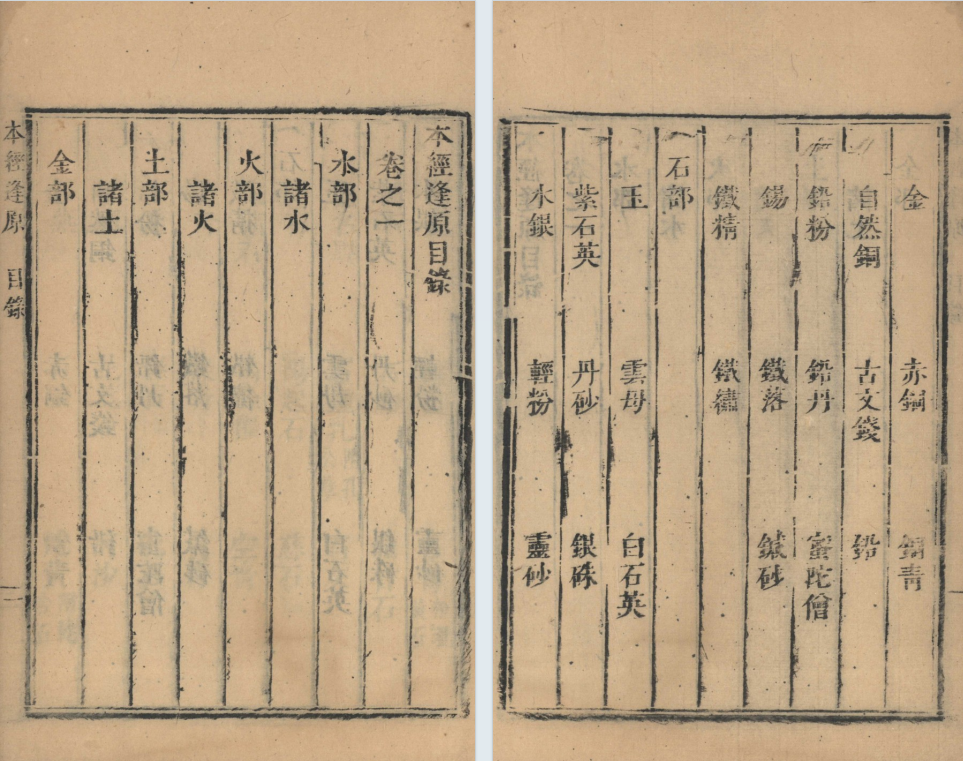 本經逢原目錄
卷之一
水部
諸水
火部
諸火
土部
諸土
金部
本經逢原 目錄 一
金 赤銅 銅青
自然銅 古文錢 鉛
鉛粉 鉛丹 蜜陀僧
錫 鐵落 鍼砂
鐵精 鐵繡
石部
玉 雲母 白石英
紫石英 丹砂 銀硃
水銀 輕粉 靈砂